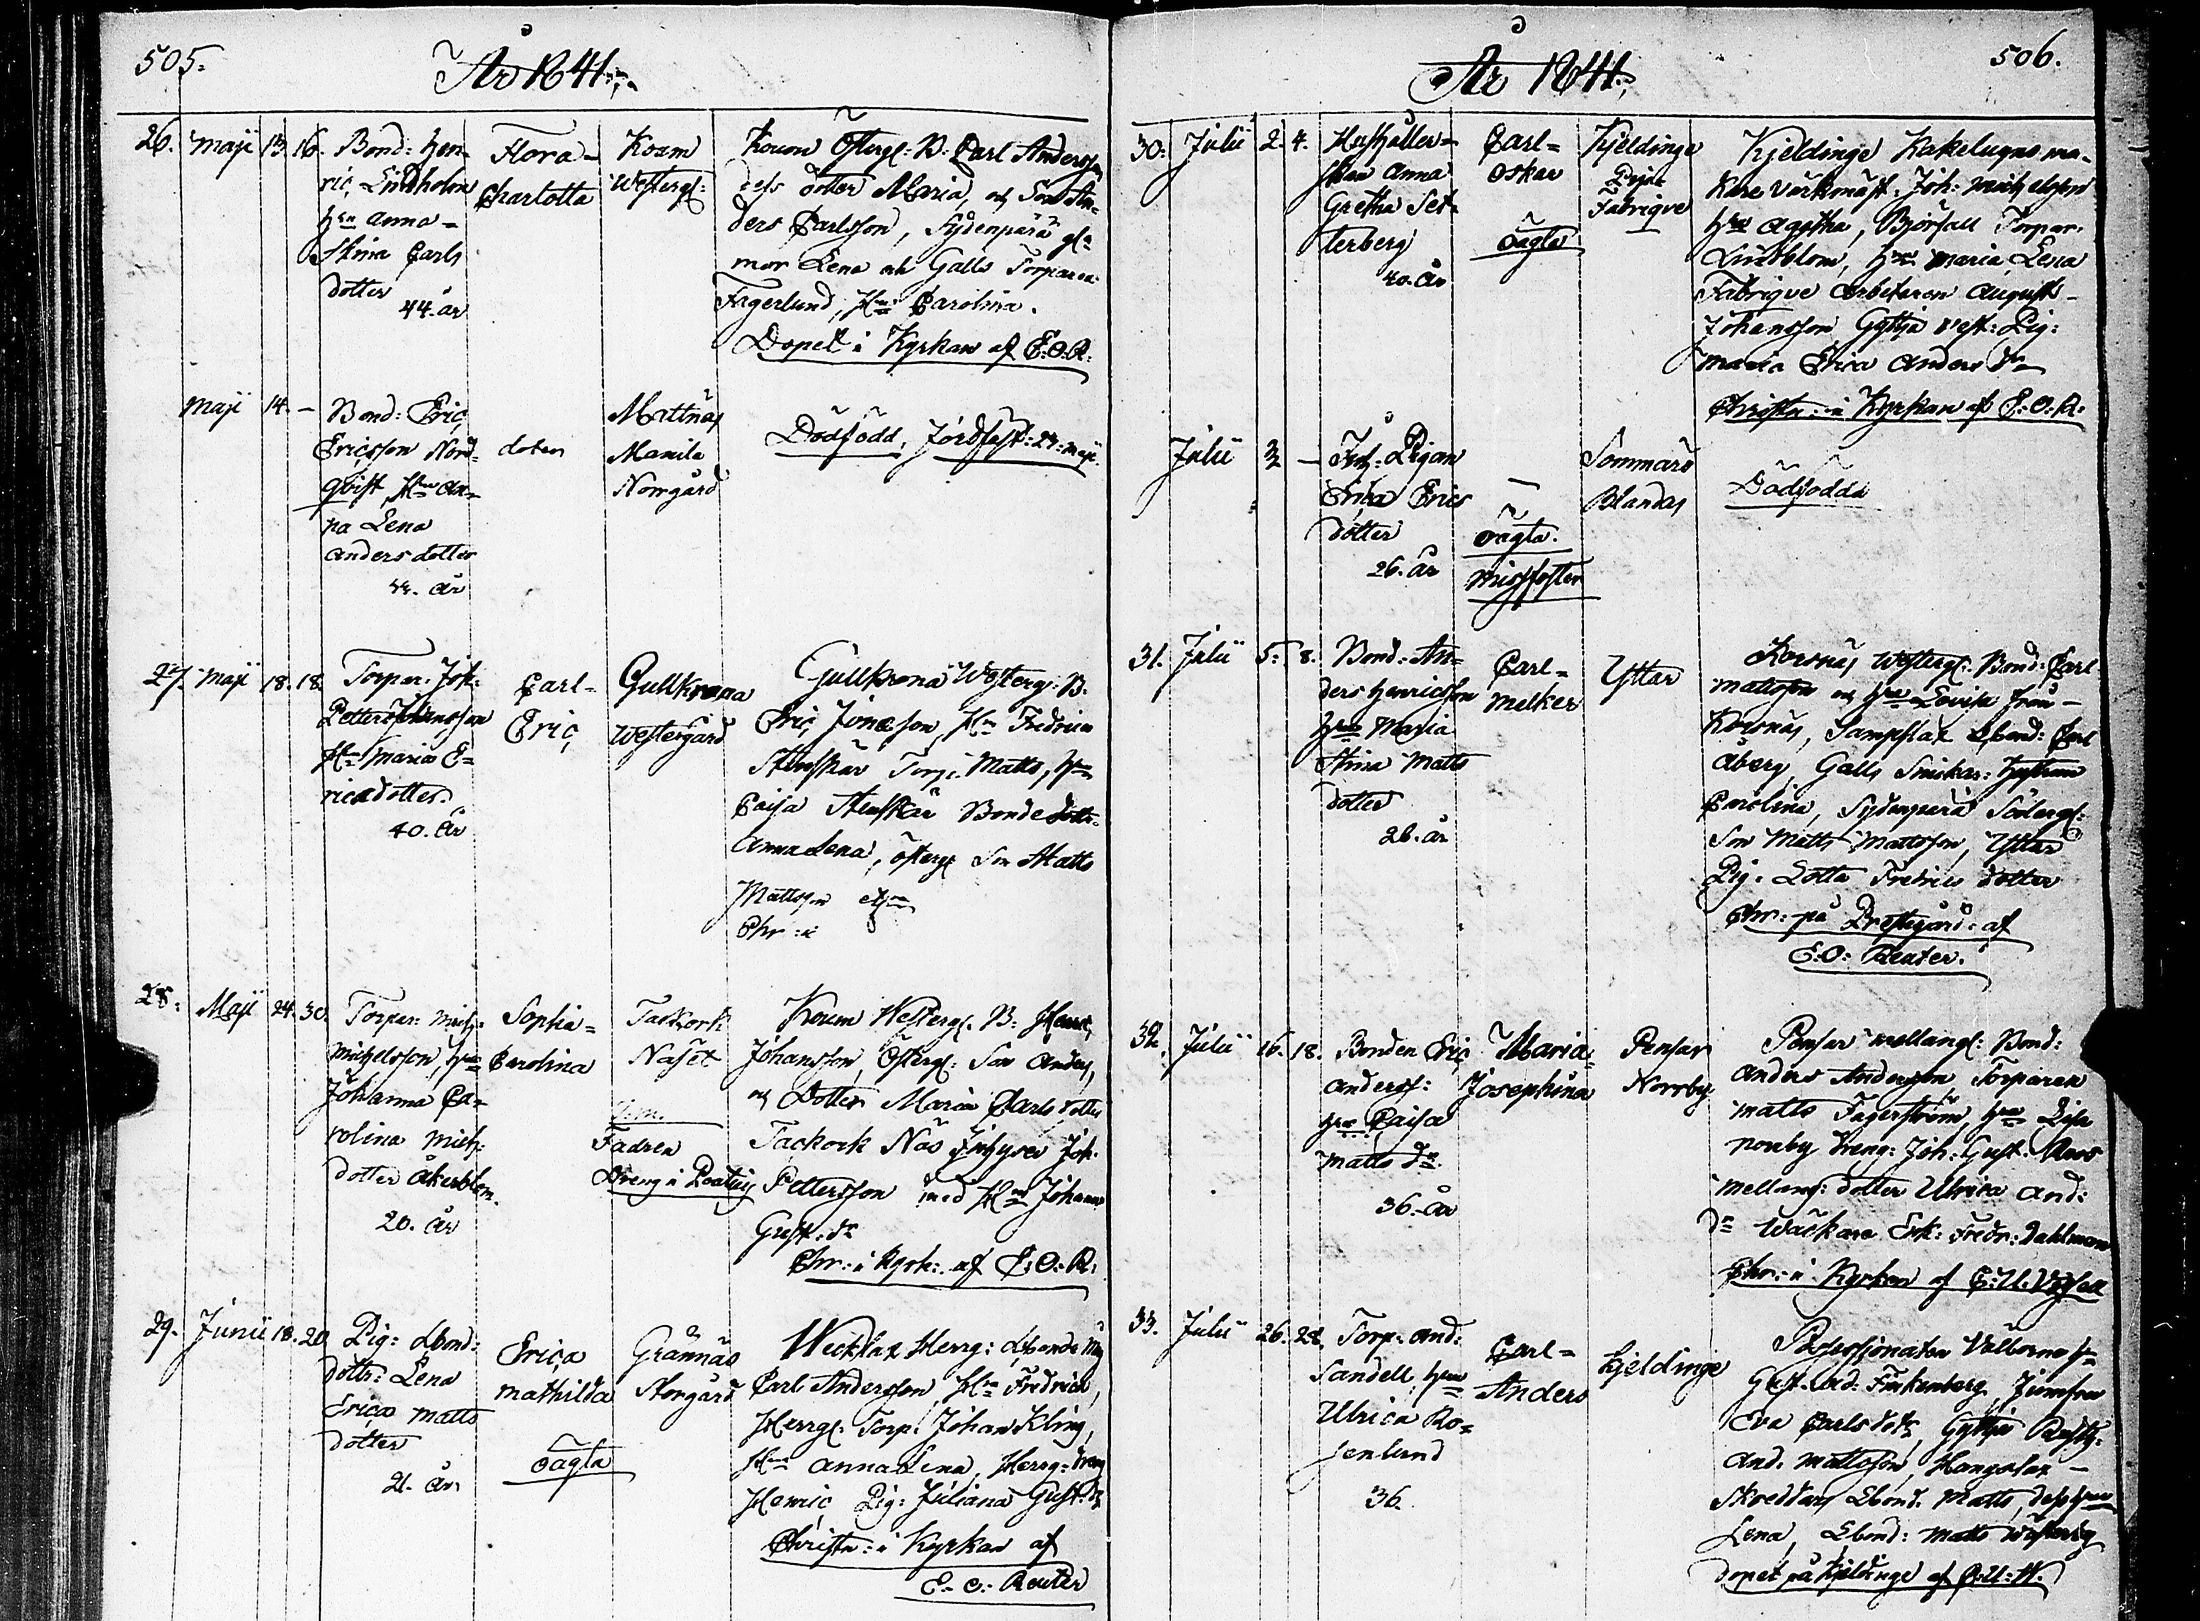 505.
År 1841.
26. Maji 13. 16.
Bond: Hen-
ric Lindholm
Hu Anna-
Stina Carls
dotter
44. år
Flora-
Charlotta
Koum
Westergs:
Koum Österg: B: Carl Andersson
dess dotter Maria, och Son An-
ders Carlsson, Sydenperä
mor Lena och Galls Torparen
Fagerlund, Hu: Carolina.
Döpet i Kyrkan af E.O.R.
Maji 14. —
Bond: Eric
Ericsson Nord-
qvist, Hu An-
na Lena
Andersdotter
år
doter
Mattnäs
Manila
Norrgård
Dödfödd, Jordfäst: Maji.
27. Maji 18. 18
Torpar: Joh:
Petter Johansson
Hu: Maria E-
ricsdotter.
40. år
Carl-
Eric
Gullkrona
Westergård
Gullkrona Westerg: B:
Eric Jonasson, Hu Fredrica
Stenskär Torp: Matts, Hu
Caisa Stenskär Bonde dottr.
Anna Lena, Österg Son Matts
Mattsson
Chr: i
28. Maji 24. 30.
Torpar: Mich:
Michelsson, Hu
Johanna Ca-
rolina Mich:
dotter Åkerblom.
20. år
Sophia-
Carolina
Tackork
Näset
Fadren
Dreng i
Koum Westerg: B: Henric
Johansson, Österg: Son Anders,
och Dotter Maria Carls dotter
Tackork Näs Inhyses Joh:
Pettersson med Hu Johanna
Gust: dr
Chr: i Kyrk: af E.O.R:
29. Junii 18. 20
Pig: Lbond:
dottr: Lena
Erica Matts
dotter
21. år.
Erica
Mathilda
oägta
Grännäs
Storgård
Wecklax Herrg: Lbonde
Carl Andersson, Hu Fredrica,
Herrg: Torp: Johan Kling,
Hu Anna Lena, Herrg: dreng
Henric Pig: Juliana Gust: dr
Christn: i Kyrkan af
E.O. Reuter
År 1841.
506.
30. Julii 2. 4.
Hushåller-
skan Anna
Gretha Set-
terberg
40. år
Carl-
Oskar
oägta
Kjeldinge
Fabrique
Kjeldinge Kakelugns ma-
kare Verkmäst: Joh: Michelsson
Hu Agatha, Björsall Torpar:
Lindblom, Hu Maria Lena
Fabrique Arbetaren August-
Johansson Gyttja Pig:
Maria Erica Anders dr
Christn: i Kyrkan af E.O.R:
Julii 3 —
Pigan
Erica Erics
dotter
26. år
—
oägta.
missfoster
Sommarö
Blandas
Dödfödda
31. Julii 5. 8.
Bond: An-
ders Henricsson
Hu Maria
Stina Matts
dotter
26. år
Carl-
Melker
Yttar
Korsnäs Westerg: Bond: Carl
Mattsson och Hu Lovisa från
Korsnäs, Lampslax Lbond: Carl
Åberg, Galls
Carolina, Sydenperä Söderg:
Son Matts Mattsson, Yttar
Pig: Lotta Fredrics dotter
Chr: på Prestgård: af
E.O: Reuter.
32. Julii 16. 18.
Bonden Eric
Anderss:
Hu Caisa
Matts dr
36. år
Maria-
Josephina
Pensar
Norrby
Pensar Mellang: Bond:
Anders Andersson Torparen
Matts Fagerström, Hu Lisa
Norrby Dreng: Joh: Gust:
Mellang: dotter Ulrica And:
dr Wäskare Erk: Fredr: Dahlman
Chr: i Kyrkan af
33. Julii 26. 28.
Torp: And:
Sandell Hu
Ulrica Ro-
senlund
36.
Carl-
Anders
Kjeldinge
Possessionaten Välborne Hr
Gust: Ad: Finkenberg, Jumfru
Eva Carls dotr, Gyttja
And: Mattsson,
Skräddars Lbond: Matts, dess Hu
Lena, Lbond: Matts
döpet på Kjeldinge af